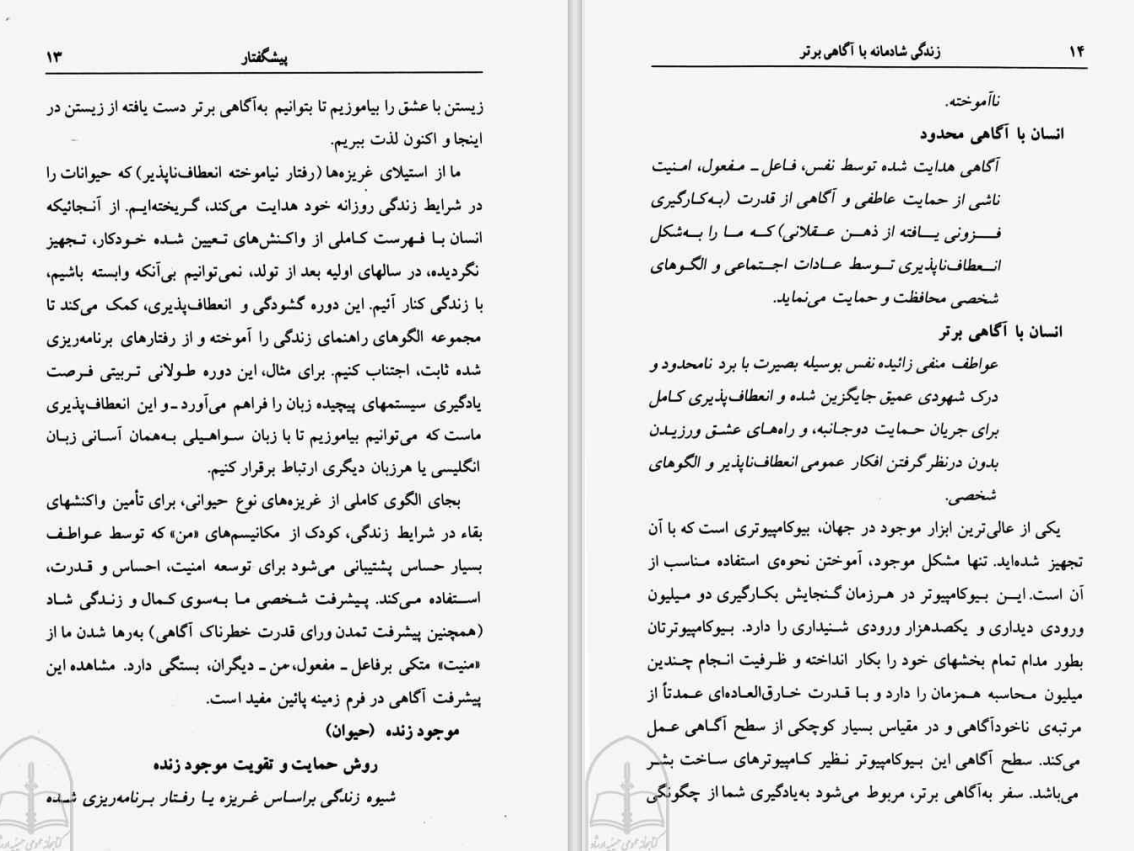 پیشگفتار ۱۳
زیستن با عشق را بیاموزیم تا بتوانیم به‌آگاهی برتر دست یافته از زیستن در
اینجا و اکنون لذت ببریم.
ما از استیلای غریزه‌ها (رفتار نیاموخته انعطاف‌ناپذیر) که حیوانات را
در شرایط زندگی روزانه خود هدایت می‌کند، گریخته‌ایم. از آنجائیکه
انسان با فهرست کاملی از واکنش‌های تعیین شده خودکار، تجهیز
نگردیده، در سالهای اولیه بعد از تولد، نمی‌توانیم بی‌آنکه وابسته باشیم،
با زندگی کنار آئیم. این دوره گشودگی و انعطاف‌پذیری، کمک می‌کند تا
مجموعه الگوهای راهنمای زندگی را آموخته و از رفتارهای برنامه‌ریزی
شده ثابت، اجتناب کنیم. برای مثال، این دوره طولانی تربیتی فرصت
یادگیری سیستمهای پیچیده زبان را فراهم می‌آورد ـ و این انعطاف‌پذیری
ماست که می‌توانیم بیاموزیم تا با زبان سواهیلی به‌همان آسانی زبان
انگلیسی یا هرزبان دیگری ارتباط برقرار کنیم.
بجای الگوی کاملی از غریزه‌های نوع حیوانی، برای تأمین واکنشهای
بقاء در شرایط زندگی، کودک از مکانیسم‌های «من» که توسط عواطف
بسیار حساس پشتیبانی می‌شود برای توسعه امنیت، احساس و قدرت،
استفاده می‌کند. پیشرفت شخصی ما به‌سوی کمال و زندگی شاد
(همچنین پیشرفت تمدن ورای قدرت خطرناک آگاهی) به‌رها شدن ما از
«منیت» متکی برفاعل ـ مفعول، من ـ دیگران، بستگی دارد. مشاهده این
پیشرفت آگاهی در فرم زمینه پائین مفید است.
موجود زنده (حیوان)
روش حمایت و تقویت موجود زنده
شیوه زندگی براساس غریزه یا رفتار برنامه‌ریزی شده
۱۴ زندگی شادمانه با آگاهی برتر
ناآموخته.
انسان با آگاهی محدود
آگاهی هدایت شده توسط نفس، فاعل ـ مفعول، امنیت
ناشی از حمایت عاطفی و آگاهی از قدرت (به‌کارگیری
فزونی یافته از ذهن عقلانی) که ما را به‌شکل
انعطاف‌ناپذیری توسط عادات اجتماعی و الگوهای
شخصی محافظت و حمایت می‌نماید.
انسان با آگاهی برتر
عواطف منفی زائیده نفس بوسیله بصیرت با برد نامحدود و
درک شهودی عمیق جایگزین شده و انعطاف‌پذیری کامل
برای جریان حمایت دوجانبه، و راه‌های عشق ورزیدن
بدون درنظر گرفتن افکار عمومی انعطاف‌ناپذیر و الگوهای
شخصی.
یکی از عالی‌ترین ابزار موجود در جهان، بیوکامپیوتری است که با آن
تجهیز شده‌اید. تنها مشکل موجود، آموختن نحوه‌ی استفاده مناسب از
آن است. این بیوکامپیوتر در هرزمان گنجایش بکارگیری دو میلیون
ورودی دیداری و یکصدهزار ورودی شنیداری را دارد. بیوکامپیوترتان
بطور مدام تمام بخشهای خود را بکار انداخته و ظرفیت انجام چندین
میلیون محاسبه همزمان را دارد و با قدرت خارق‌العاده‌ای عمدتاً از
مرتبه‌ی ناخودآگاهی و در مقیاس بسیار کوچکی از سطح آگاهی عمل
می‌کند. سطح آگاهی این بیوکامپیوتر نظیر کامپیوترهای ساخت بشر
می‌باشد. سفر به‌آگاهی برتر، مربوط می‌شود به‌یادگیری شما از چگونگی